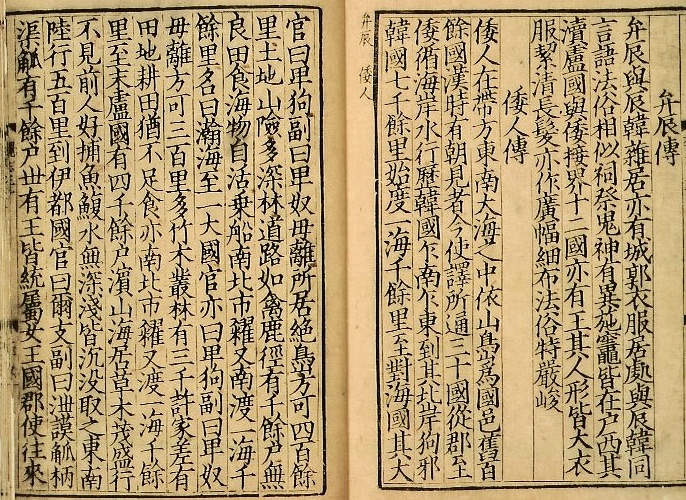 弁辰傳
弁辰與辰韓雜居亦有城郭衣服居處與辰韓同
言語法俗相似祠祭鬼神有異施竈皆在戶西其
瀆盧國與倭接界十二國亦有王其人形皆大衣
服絜清長髮亦作廣幅細布法俗特嚴峻
倭人傳
倭人在帶方東南大海之中依山島爲國邑舊百
餘國漢時有朝見者今使譯所通三十國從郡至
倭循海岸水行歷韓國乍南乍東到其北岸狗邪
韓國七千餘里始度一海千餘里至對海國其大
弁辰 倭人
官曰卑狗副曰卑奴毋離所居絶島方可四百餘
里土地山險多深林道路如禽鹿徑有千餘戶無
良田食海物自活乗船南北市糴又南渡一海千
餘里名曰瀚海至一大國官亦曰卑狗副曰卑奴
毋離方可三百里多竹木叢林有三千許家差有
田地耕田猶不足食亦南北市糴又渡一海千餘
里至末盧國有四千餘戶濱山海居草木茂盛行
不見前人好捕魚鰒水無深淺皆沉没取之東南
陸行五百里到伊都國官曰爾支副曰泄謨觚柄
渠觚有千餘戶丗有王皆統屬女王國郡使往來